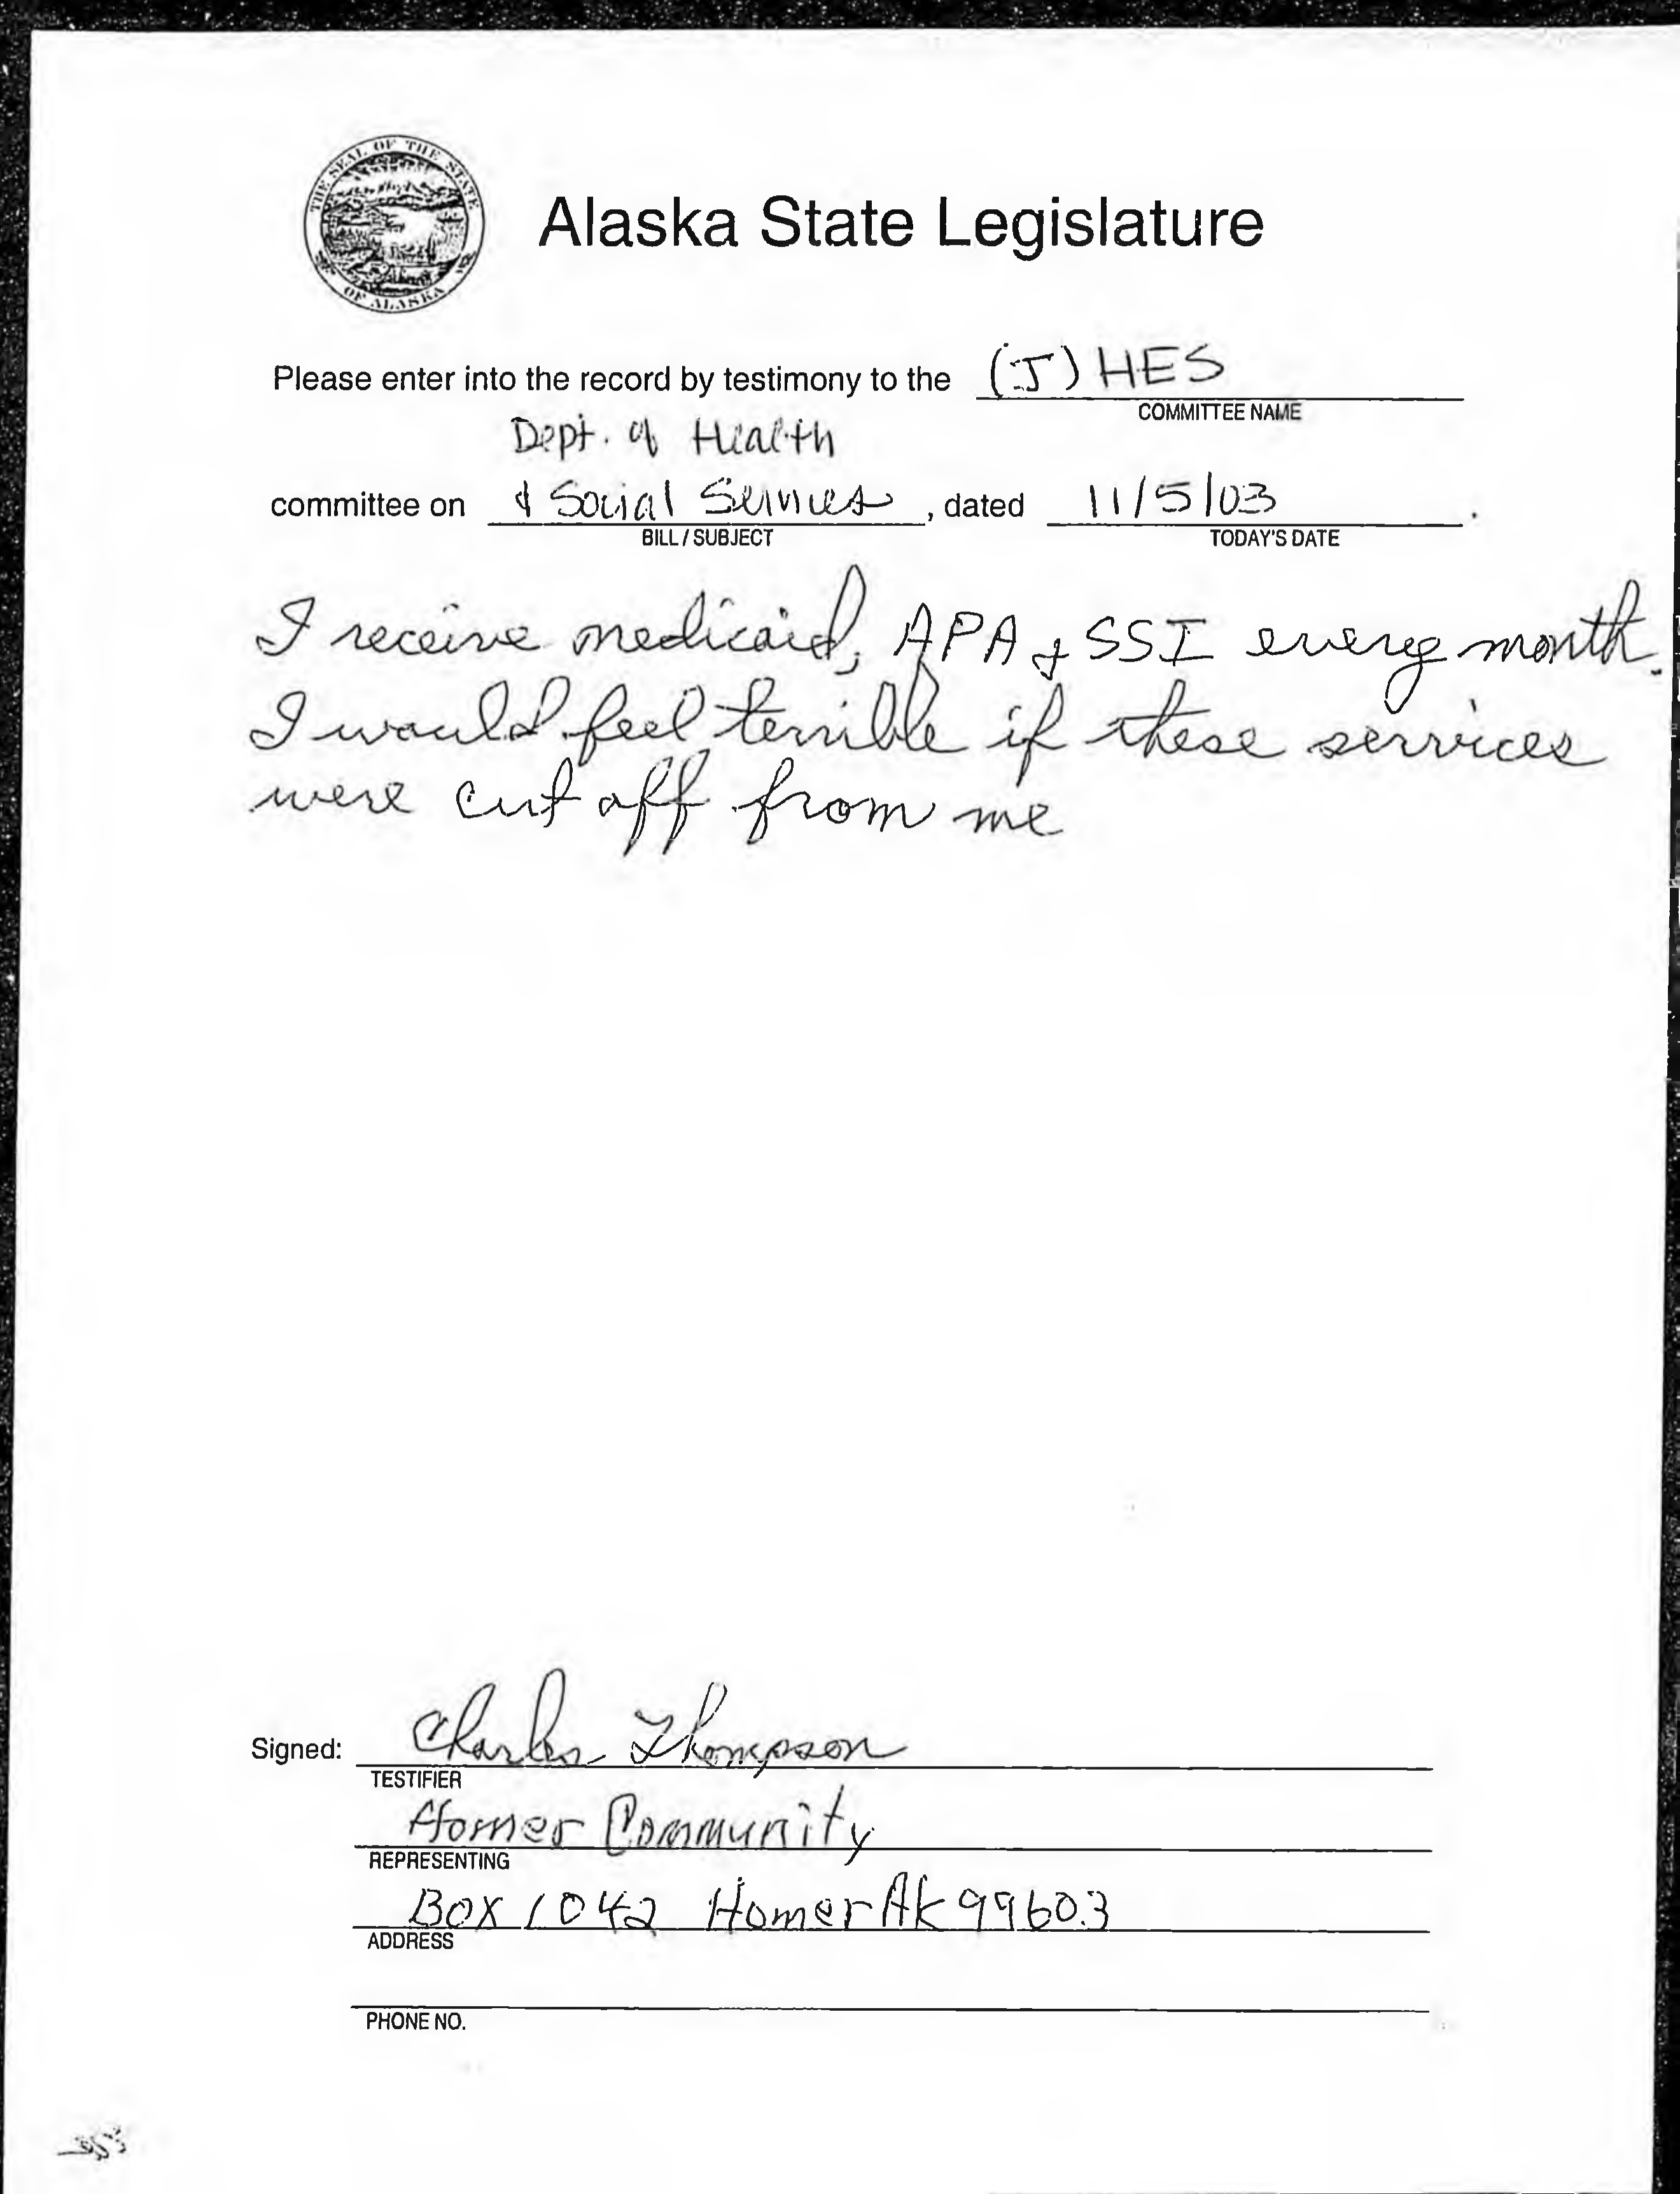 THE SEAL OF THE STATE OF ALASKA
Alaska State Legislature
Please enter into the record by testimony to the (J) HES
COMMITTEE NAME
Dept. of Health
committee on & Social Services, dated 11/5/03.
BILL / SUBJECT TODAY'S DATE
I receive medicaid, APA & SSI every month.
I would feel terrible if these services
were cut off from me
Signed: Charles Thompson
TESTIFIER
Homer Community
REPRESENTING
Box 1042 Homer Ak 99603
ADDRESS
PHONE NO.